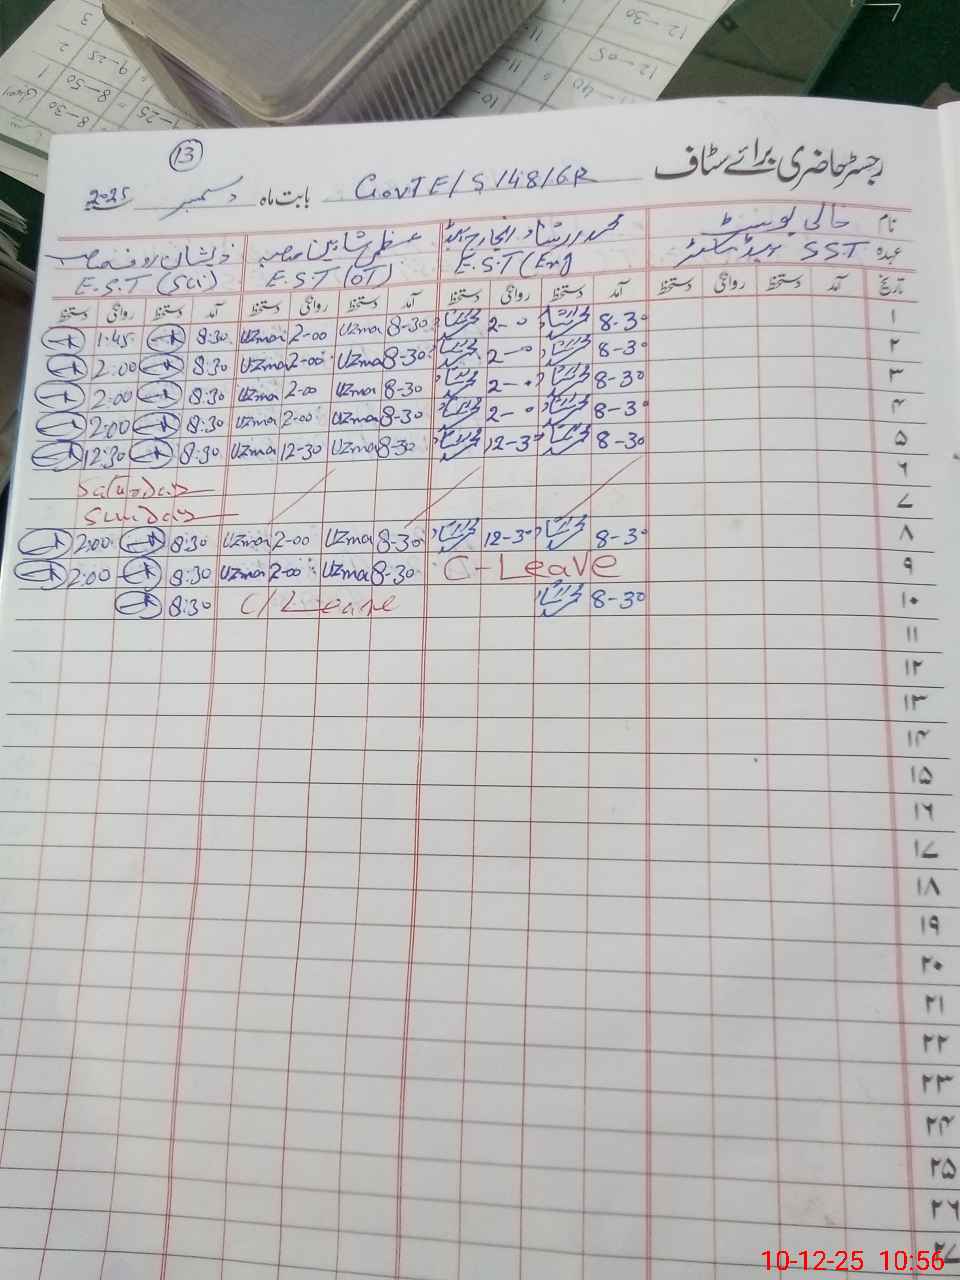 13
رجسٹر حاضری برائے سٹاف
GovT E/S 148/6R بابت ماہ دسمبر 2025
نام خالی پوسٹ محمد ارشاد انچارج ہیڈ عظمیٰ شاہین صاحبہ ذیشان رؤف صاحب
عہدہ SST ہیڈماسٹر E.S.T (Eng) E.S.T (OT) E.S.T (Sci)
تاریخ آمد دستخط روانگی دستخط آمد دستخط روانگی دستخط آمد دستخط روانگی دستخط آمد دستخط روانگی دستخط
۱ 8-30 2-0 8-30 Uzma 2-00 Uzma 8:30 1:45
۲ 8-30 2-0 8-30 Uzma 2-00 Uzma 8:30 2:00
۳ 8-30 2-0 8-30 Uzma 2-00 Uzma 8:30 2:00
۴ 8-30 2-0 8-30 Uzma 2-00 Uzma 8:30 2:00
۵ 8-30 12-30 8-30 Uzma 12-30 Uzma 8:30 12:30
۶ Saturday
۷ Sunday
۸ 8-30 12-30 8-30 Uzma 2-00 Uzma 8:30 2:00
۹ C-Leave 8-30 Uzma 2-00 Uzma 8:30 2:00
۱۰ 8-30 C/Leave 8:30
۱۱
۱۲
۱۳
۱۴
۱۵
۱۶
۱۷
۱۸
۱۹
۲۰
۲۱
۲۲
۲۳
۲۴
۲۵
۲۶
۲۷
10-12-25 10:56